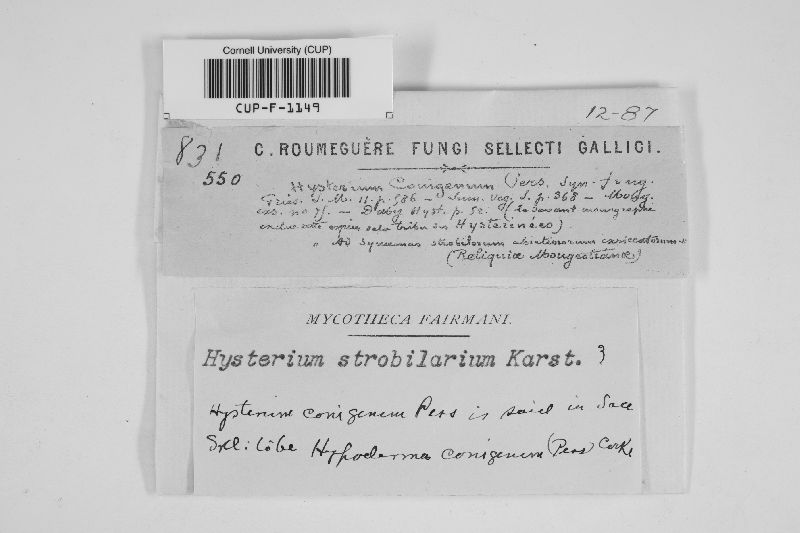 Cornell University (CUP)
CUP-F-1149
12-87
831
C. ROUMEGUÈRE FUNGI SELLECTI GALLICI.
550
Hysterium Conigenum Pers. Syn. fung.
Fries. S. M. II. p. 586 – Sum. veg. S. p. 368 – Moug.
exs. no – Duby Hyst. p. 52. (le savant monographe
exclue cette espèce de la tribu des Hysterinées).
" Ad squamas strobilorum abietinorum exsiccatorum "
(Reliquiæ Mougeotianæ)
MYCOTHECA FAIRMANI.
Hysterium strobilarium Karst. ?
Hysterium conigenum Pers is said in Sacc
Syll: to be Hypoderma conigenum (Pers) Cooke